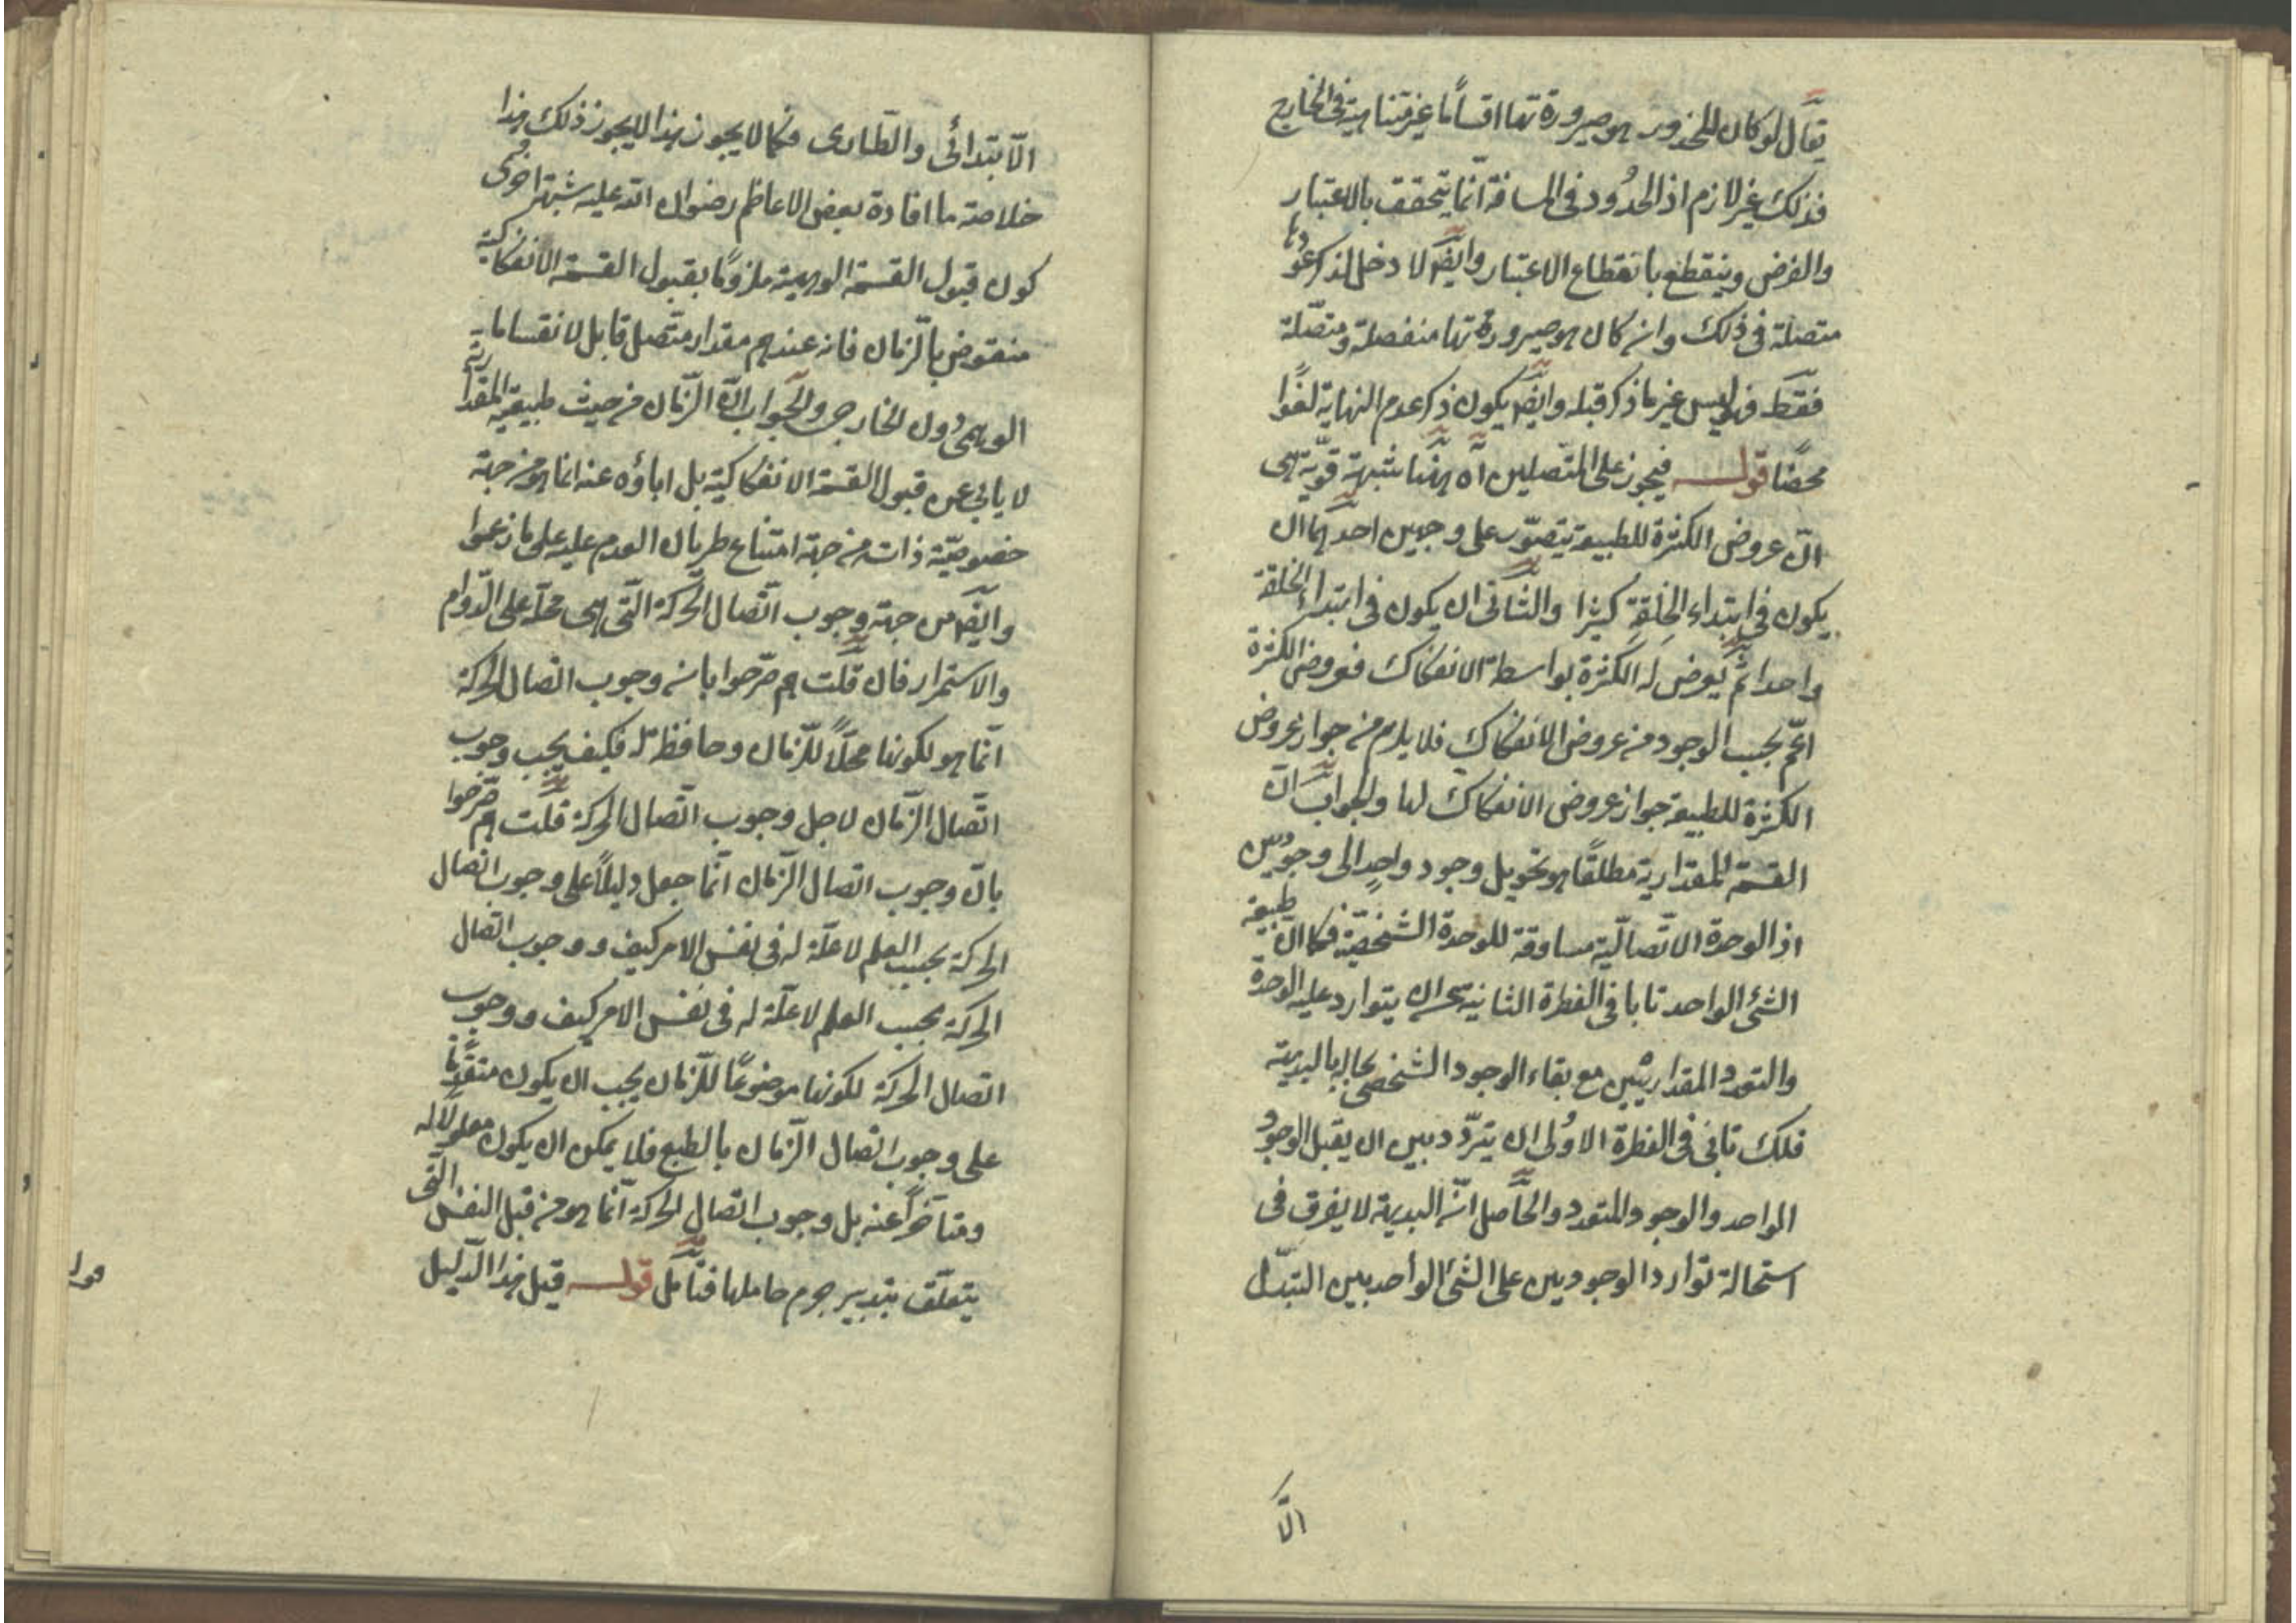 يقال لو كان المحذور هو صيرورتها اقساماً غير متناهية فى الخارج
فذلك غير لازم اذ الحدود فى المسافة انّما يتحقق بالاعتبار
والفرض وينقطع بانقطاع الاعتبار وايضًا لا دخل لذكر عودها
متصلة فى ذلك وان كان هو صيرورتها منفصلة ومتصّلة
فقط فهو ليس غير ما ذكر قبله وايضًا يكون ذكر عدم النهاية لغوًا
محضًا قولـــه فيجوز على المتّصلين آه ههنا شبهة قويّة هى
انّ عروض الكثرة للطبيعة يتصوّر على وجهين احدهما ان
يكون فى ابتداء الخلقة كثيرا والثانى ان يكون فى ابتداء الخلقة
واحدا ثم يعرض له الكثرة بواسطة الانفكاك فعروض الكثرة
اعمّ بحسب الوجود من عروض الانفكاك فلا يلزم من جواز عروض
الكثرة للطبيعة جواز عروض الانفكاك لها والجواب انّ
القسمة المقدارية مطلقًا هو تحويل وجود واحدٍ الى وجودين
اذ الوحدة الاتّصاليّة مساوقة للوحدة الشخصيّة فكما انّ طبيعة
الشئ الواحد تابا فى الفطرة الثانية عن ان يتوارد عليه الوحدة
والتعدد المقداريّين مع بقاء الوجود الشخصى بحاله بالبديهة
فلك تابى فى الفطرة الاولى ان يتردّد بين ان يقبل الوجود
الواحد والوجود المتعدد والحاصل انّ البديهة لا يفرق فى
استحالة توارد الوجودين على الشئ الواحد بين التبدّل
الّا
الّابتدائى والطّارى فكما لا يجوز هذا لا يجوز ذلك هذا
خلاصة ما افاده بعض الاعاظم رضوان الله عليه شبهة اخرى
كون قبول القسمة الوهمية ملزومًا بقبول القسمة الانفكاكية
منقوض بالزمان فانه عندهم مقدار متّصل قابل لانقساما
الوهمى دون الخارجى والجواب انّ الزّمان من حيث طبيعته المقدارية
لا يابى عن قبول القسمة الانفكاكيّة بل اباؤه عنه انما هو من جهة
خصوصيّة ذاته من جهة امتناع طريان العدم عليه على ما زعموا
وايضًا من جهة وجوب اتّصال الحركة الّتى هى محلّه على الدّوام
والاستمرار فان قلت هم صرّحوا بانه وجوب اتصال الحركة
انّما هو لكونها محلّاً للزّمان وحافظة له فكيف يجب وجوب
اتّصال الزّمان لاجل وجوب اتّصال الحركة قلت هم صرّحوا
بانّ وجوب اتصال الزّمان انّما جعل دليلًا على وجوب اتصال
الحركة بحسب العلم لا علّة له فى نفس الامر كيف ووجوب اتصال
الحركة بحسب العلم لا علّة له فى نفس الامر كيف ووجوب
اتصال الحركة لكونها موضوعًا للزّمان يجب ان يكون متقدّمًا
على وجوب اتصال الزّمان بالطبع فلا يمكن ان يكون معلولًا له
ومتأخّراً عنه بل وجوب اتصال الحركة انّما هو من قبل النفس الّتى
يتعلّق بتدبير جرم حاملها فتأمّل قولـــه قيل هذا الدّليل
قوله